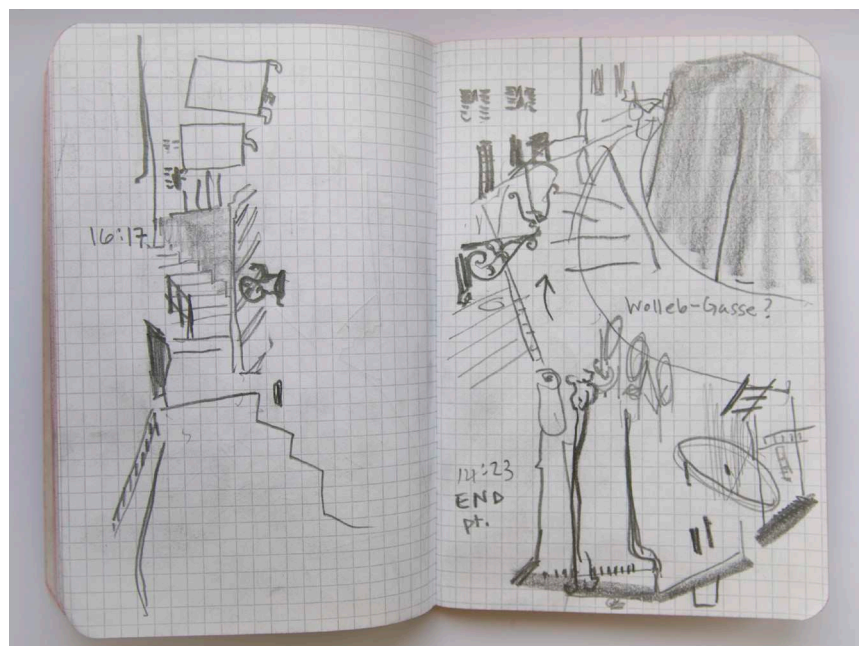 16:17
Wolleb-Gasse?
14:23
END
pt.